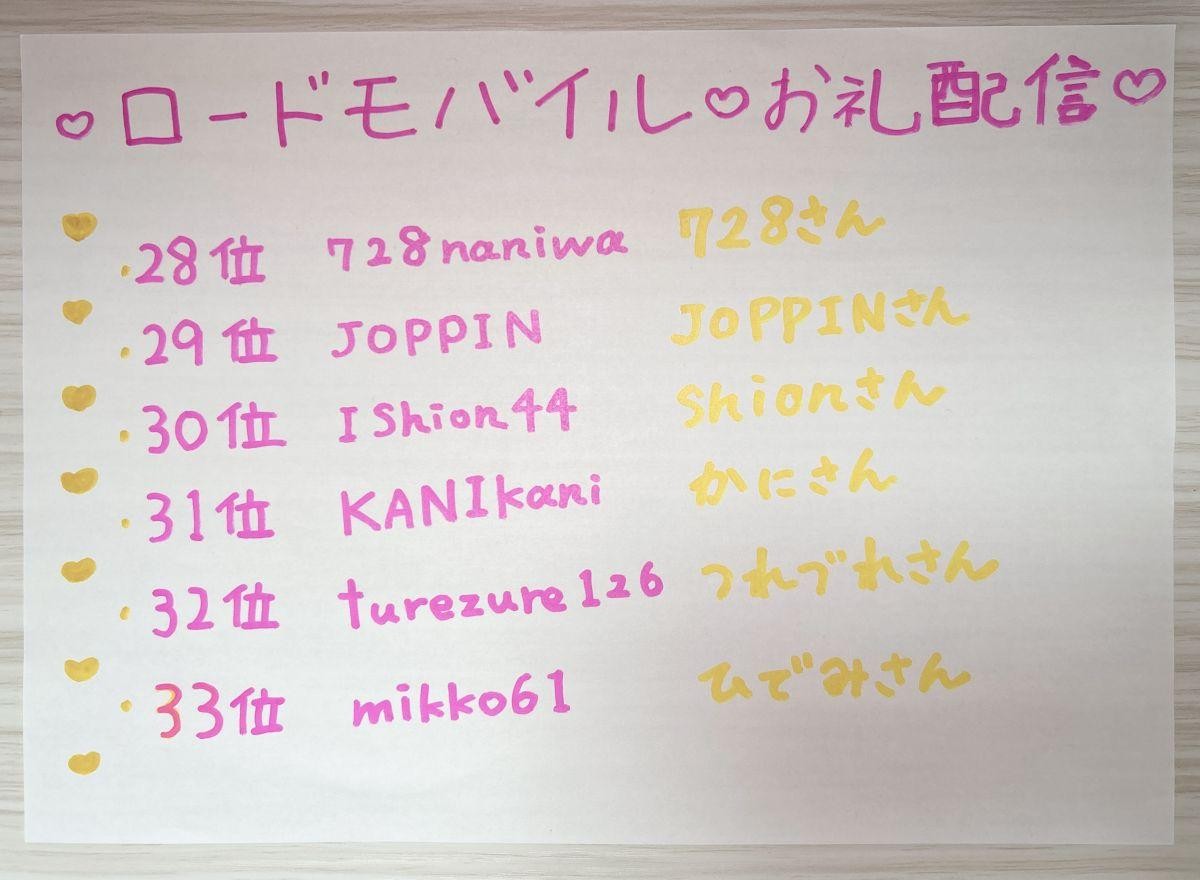 ♡ロードモバイル♡お礼配信♡
・28位 728naniwa 728さん
・29位 JOPPIN JOPPINさん
・30位 IShion44 Shionさん
・31位 KANIkani かにさん
・32位 turezure126 つれづれさん
・33位 mikko61 ひでみさん